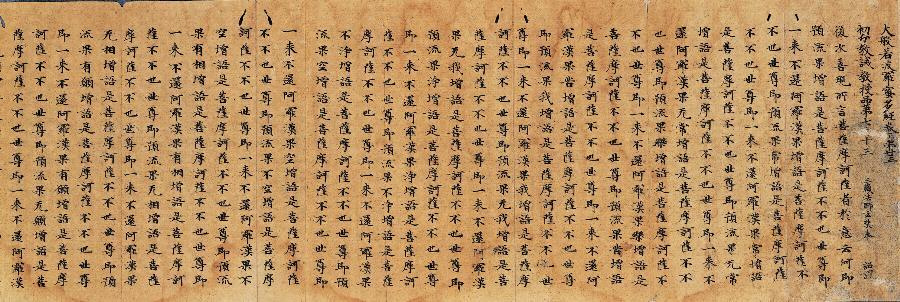 大般若波羅蜜多經卷第卅三
初分教誡教授品第七之廿三 三藏法師玄奘奉 詔譯
復次善現所言菩薩摩訶薩者於意云何即
預流果增語是菩薩摩訶薩不不也世尊即
一來不還阿羅漢果增語是菩薩摩訶薩不
不也世尊即預流果常增語是菩薩摩訶薩
不不也世尊即一來不還阿羅漢果常增語
是菩薩摩訶薩不不也世尊即預流果无常
增語是菩薩摩訶薩不不也世尊即一來不
還阿羅漢果无常增語是菩薩摩訶薩不不
也世尊即預流果樂增語是菩薩摩訶薩不
不也世尊即一來不還阿羅漢果樂增語是
菩薩摩訶薩不不也世尊即預流果苦增語
是菩薩摩訶薩不不也世尊即一來不還阿
羅漢果苦增語是菩薩摩訶薩不不也世尊
即預流果我增語是菩薩摩訶薩不不也世
尊即一來不還阿羅漢果我增語是菩薩摩
訶薩不不也世尊即預流果无我增語是菩
薩摩訶薩不不也世尊即一來不還阿羅漢
果无我增語是菩薩摩訶薩不不也世尊即
預流果淨增語是菩薩摩訶薩不不也世尊
即一來不還阿羅漢果淨增語是菩薩摩訶
薩不不也世尊即預流果不淨增語是菩薩
摩訶薩不不也世尊即一來不還阿羅漢果
不淨增語是菩薩摩訶薩不不也世尊即預
流果空增語是菩薩摩訶薩不不也世尊即
一來不還阿羅漢果空增語是菩薩摩訶薩
不不也世尊即預流果不空增語是菩薩摩
訶薩不不也世尊即一來不還阿羅漢果不
空增語是菩薩摩訶薩不不也世尊即預流
果有相增語是菩薩摩訶薩不不也世尊即
一來不還阿羅漢果有相增語是菩薩摩訶
薩不不也世尊即預流果无相增語是菩薩
摩訶薩不不也世尊即一來不還阿羅漢果
无相增語是菩薩摩訶薩不不也世尊即預
流果有願增語是菩薩摩訶薩不不也世尊
即一來不還阿羅漢果有願增語是菩薩摩
訶薩不不也世尊即預流果无願增語是菩
薩摩訶薩不不也世尊即一來不還阿羅漢